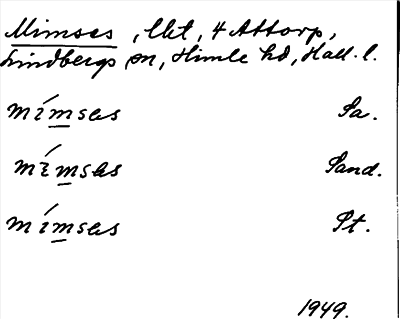 Mimses, lht, 4 Attorp,
Lindbergs sn, Himle hd, Hall. l.
mímsəs Sa.
mímsəs Sand.
mímsəs St.
1949.